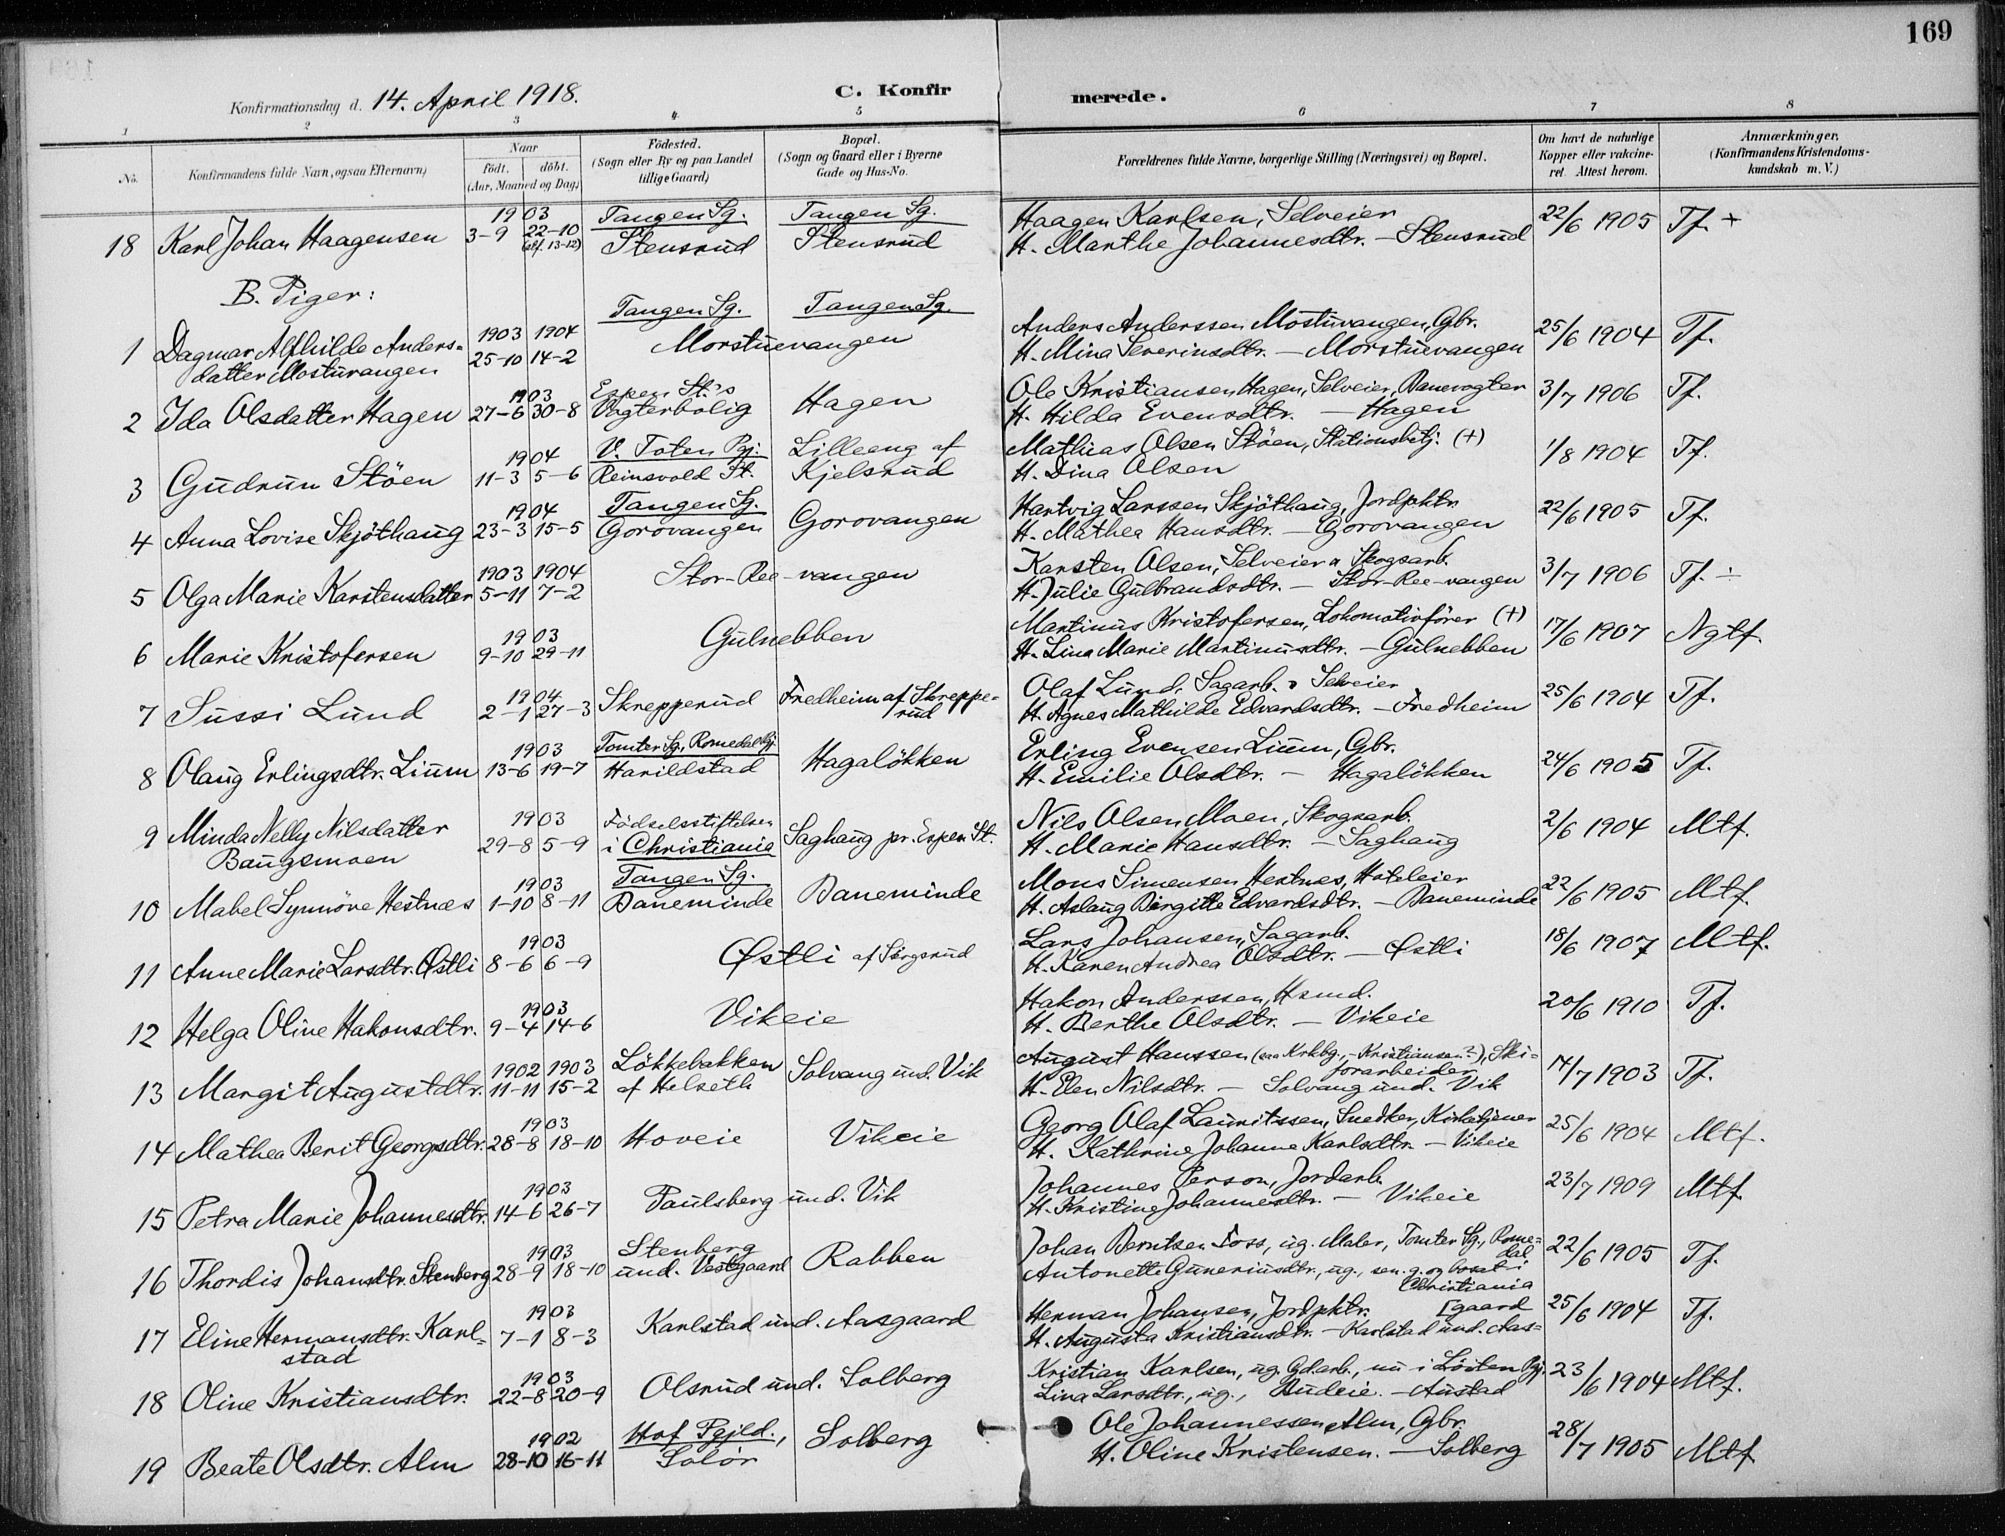 169
Konfirmationsdag d. 14. April 1918.
C. Konfirmerede.
1 2 3 4 5 6 7 8
No.
Konfirmandens fulde Navn, ogsaa Efternavn)
Naar
födt. döbt.
(Aar, Maaned og Dag)
Födested.
(Sogn eller By og paa Landet
tillige Gaard)
Bopæl.
(Sogn og Gaard eller i Byerne
Gade og Hus-No.
Forældrenes fulde Navne, borgerlige Stilling (Næringsvei) og Bopæl.
Om havt de naturlige
Kopper eller vakcine-
ret. Attest herom.
Anmærkninger.
(Konfirmandens Kristendoms-
kundskab m. V.)
1903 Tangen Sg. Tangen Sg. Haagen Karlsen, Selveier 22/6 1905 Tf. +
18 Karl Johan Haagensen 3-9 22-10 Stensrud Stensrud H. Marthe Johannesdtr. – Stensrud
(abf. 13-12)
B. Piger:
Tangen Sg. Tangen Sg.
1903 1904 Anders Anderssen Mostuvangen, Gbr. 25/6 1904 Tf.
1 Dagmar Alfhilde Anders- 25-10 14-2 Morstuevangen H. Mina Severinsdtr. – Morstuevangen
datter Mostuvangen
1903 Espen St.'s Ole Kristiansen Hagen, Selveier, Banevogter 3/7 1906 Tf.
2 Ida Olsdatter Hagen 27-6 30-8 Vogterbolig Hagen H. Hilda Evensdtr. – Hagen
1904 V. Toten Pgj. Lilleeng af Mathias Olsen Stöen, Stationsbetj. (+) 1/8 1904 Tf.
3 Gudrun Stöen 11-3 5-6 Reinsvold St. Kjelsrud H. Dina Olsen
1904 Tangen Sg. Hartvig Larssen Skjöthaug, Jordpktr. 22/6 1905 Tf.
4 Anna Lovise Skjöthaug 23-3 15-5 Gorovangen Gorovangen H. Mathea Hansdtr. – Gorovangen
1903 1904 Karsten Olsen, Selveier & Skogsarb. 3/7 1906 Tf. ÷
5 Olga Marie Karstensdatter 5-11 7-2 Stor-Ree-vangen H. Julie Gulbrandsdtr. – Stor-Ree-vangen
1903 Martinus Kristofersen, Lokomotivförer (+) 17/6 1907 Ngtf.
6 Marie Kristofersen 9-10 29-11 Gulnebben H. Lina Marie Martinusdtr. – Gulnebben
1904 Olaf Lund, Sagarb. & Selveier 25/6 1904 Tf.
7 Sussi Lund 2-1 27-3 Skrepperud Fredheim af Skreppe- H. Agnes Mathilde Edvardsdtr. – Fredheim
rud
1903 Tomter Sg., Romedal Pgj. Erling Evensen Lium, Gbr. 24/6 1905 Tf.
8 Olaug Erlingsdtr. Lium 13-6 19-7 Harildstad Hagalökken H. Emilie Olsdtr. – Hagalökken
1903 Födselsstiftelsen Nils Olsen Moen, Skogsarb. 2/6 1904 Mtf.
9 Minda Nelly Nilsdatter 29-8 5-9 i Christiania Saghaug pr. Espen St. H. Marie Hansdtr. – Saghaug
Baugsmoen
1903 Tangen Sg. Mons Simensen Hestnes, Hoteleier 22/6 1905 Mtf.
10 Mabel Synnöve Hestnæs 1-10 8-11 Baneminde Baneminde H. Aslaug Birgitte Edvardsdtr. – Baneminde
1903 Lars Johansen, Sagarb. 18/6 1907 Mtf.
11 Anne Marie Larsdtr. Østli 8-6 6-9 Østli af Sörgsrud H. Karen Andrea Olsdtr. – Østli
1903 Hakon Anderssen, Hsmd. 20/6 1910 Tf.
12 Helga Oline Hakonsdtr. 9-4 14-6 Vikeie H. Berthe Olsdtr. – Vikeie
1902 1903 Lökkebakken August Hanssen (saa Krkbg., – Kristiansen?), Ski- 14/7 1903 Tf.
forarbeider
13 Margit Augustdtr. 11-11 15-2 af Helseth Solvang und. Vik H. Elen Nilsdtr. – Solvang und. Vik
1903 Georg Olaf Lauritssen, Snedker, Kirketjener 25/6 1904 Mtf.
14 Mathea Berit Georgsdtr. 28-8 18-10 Hoveie Vikeie H. Kathrine Johanne Karlsdtr. – Vikeie
1903 Johannes Person, Jordarb. 23/7 1909 Mtf
15 Petra Marie Johannesdtr. 14-6 26-7 Paulsberg und. Vik H. Kristine Johannesdtr. – Vikeie
1903 Stenberg Johan Berntsen Foss, ug. Maler, Tomter Sg., Rome- 22/6 1905 Tf.
dal
16 Thordis Johansdtr. Stenberg 28-9 18-10 und. Vestgaard Rabben Antonette Guneriusdtr., ug., sen. g. og bosat i
Christiania
1903 Herman Johansen, Jordpktr. [gaard 25/6 1904 Tf.
17 Eline Hermansdtr. Karl- 7-1 8-3 Karlstad und. Aasgaard H. Augusta Kristiansdtr. – Karlstad und. Aas-
stad
1903 Kristian Karlsen, ug. Gdarb., nu i Löiten Pgj. 23/6 1904 Mtf.
18 Oline Kristiansdtr. 22-8 20-9 Olsrud und. Solberg Lina Larsdtr., ug., Budeie. – Austad
1902 Hof Pgjld., Ole Johannessen Alm, Gbr. 28/7 1905 Mtf
19 Beate Olsdtr. Alm 28-10 16-11 Solör Solberg H. Oline Kristensen. – Solberg